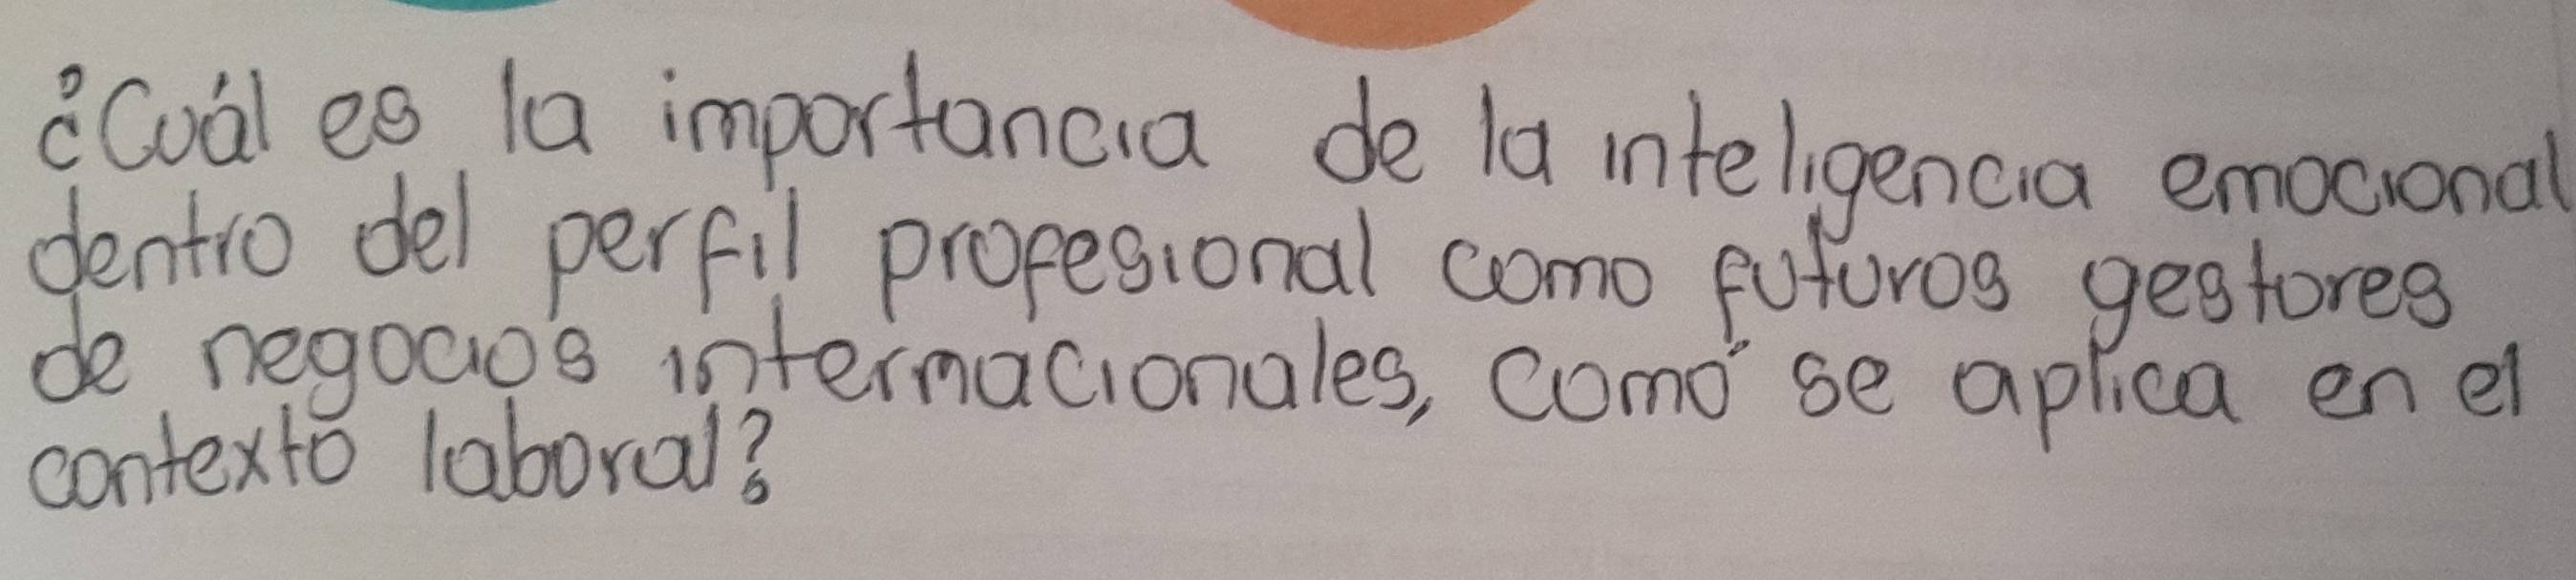 ¿Cuál es la importancia de la inteligencia emocional
dentro del perfil profesional como futuros gestores
de negocios internacionales, comó se aplica en el
contexto laboral?